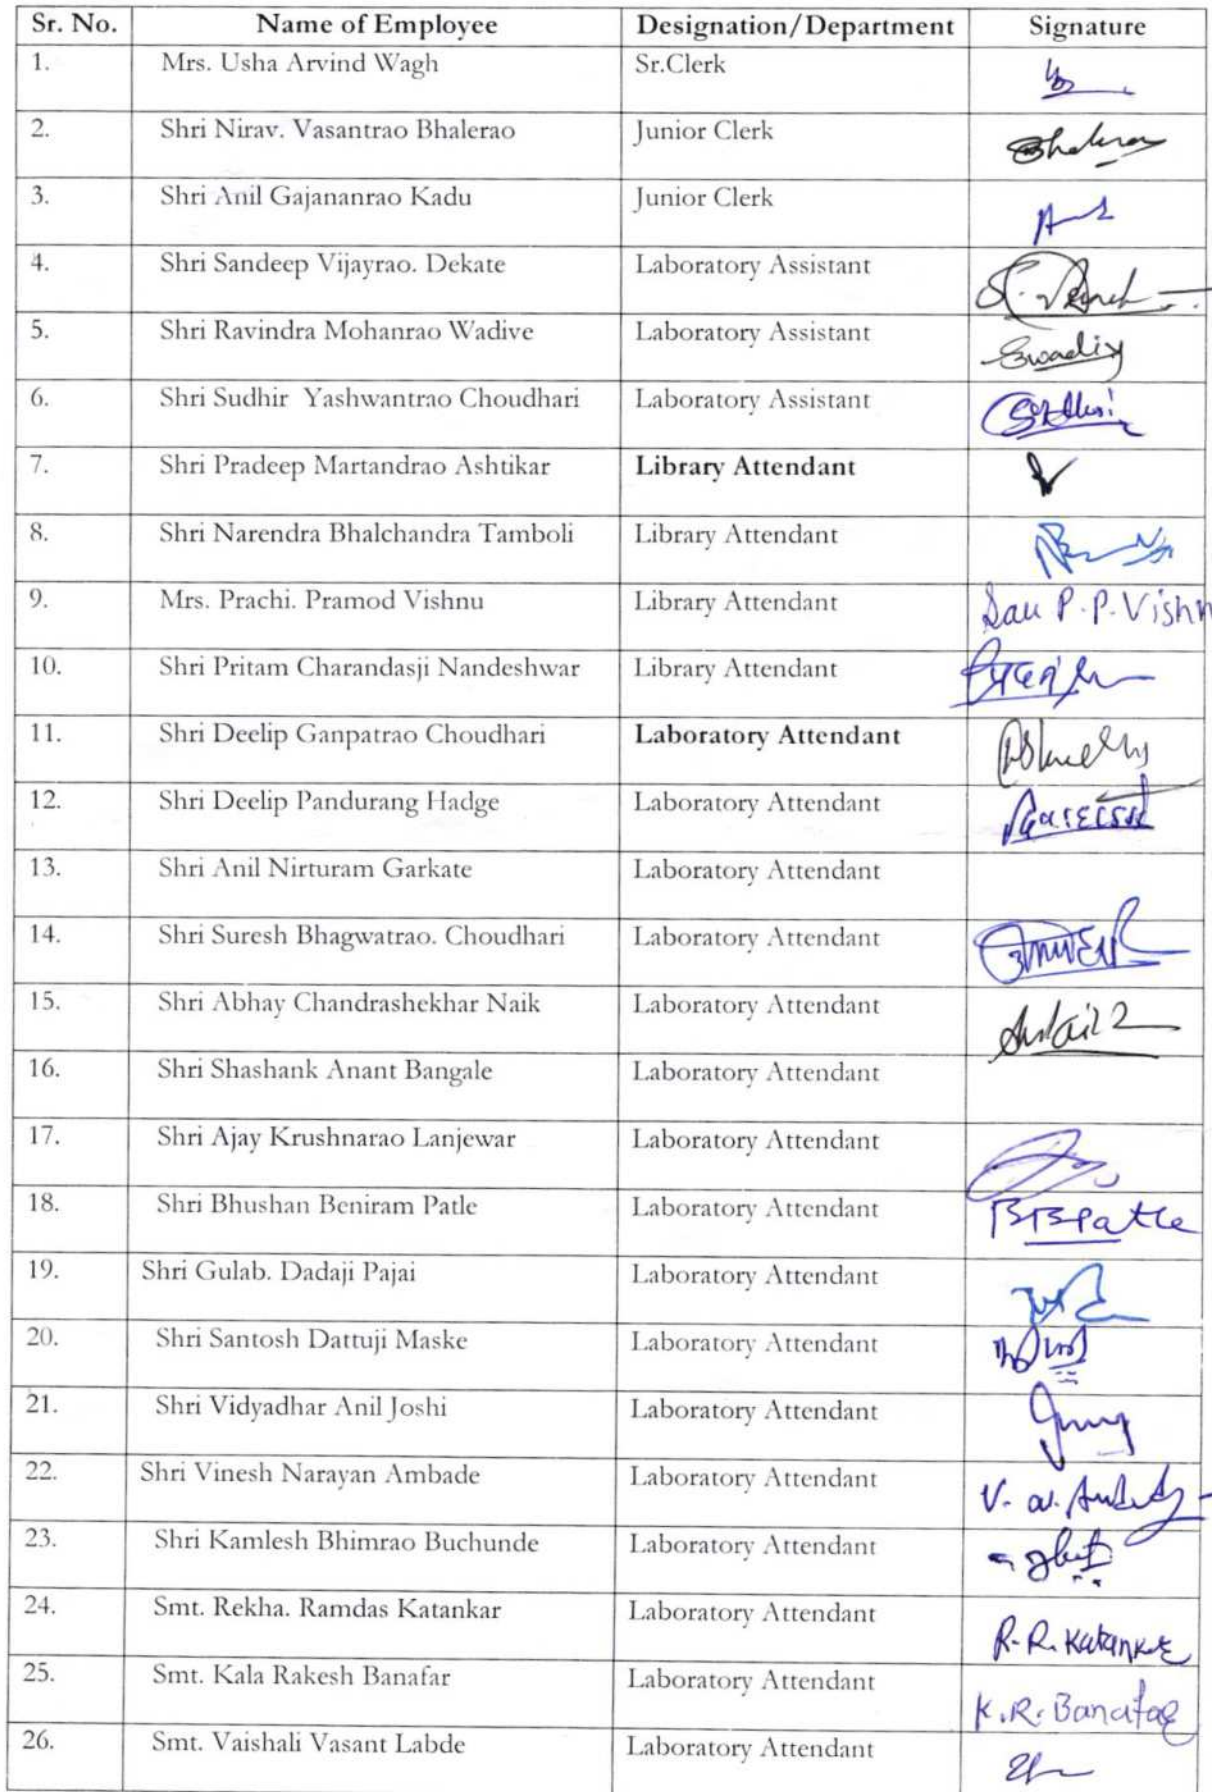 Sr. No. Name of Employee Designation/Department Signature
1. Mrs. Usha Arvind Wagh Sr.Clerk
2. Shri Nirav. Vasantrao Bhalerao Junior Clerk
3. Shri Anil Gajananrao Kadu Junior Clerk
4. Shri Sandeep Vijayrao. Dekate Laboratory Assistant
5. Shri Ravindra Mohanrao Wadive Laboratory Assistant
6. Shri Sudhir Yashwantrao Choudhari Laboratory Assistant
7. Shri Pradeep Martandrao Ashtikar Library Attendant
8. Shri Narendra Bhalchandra Tamboli Library Attendant
9. Mrs. Prachi. Pramod Vishnu Library Attendant Sau P.P. Vishn
10. Shri Pritam Charandasji Nandeshwar Library Attendant
11. Shri Deelip Ganpatrao Choudhari Laboratory Attendant
12. Shri Deelip Pandurang Hadge Laboratory Attendant
13. Shri Anil Nirturam Garkate Laboratory Attendant
14. Shri Suresh Bhagwatrao. Choudhari Laboratory Attendant
15. Shri Abhay Chandrashekhar Naik Laboratory Attendant
16. Shri Shashank Anant Bangale Laboratory Attendant
17. Shri Ajay Krushnarao Lanjewar Laboratory Attendant
18. Shri Bhushan Beniram Patle Laboratory Attendant BBPatle
19. Shri Gulab. Dadaji Pajai Laboratory Attendant
20. Shri Santosh Dattuji Maske Laboratory Attendant
21. Shri Vidyadhar Anil Joshi Laboratory Attendant
22. Shri Vinesh Narayan Ambade Laboratory Attendant
23. Shri Kamlesh Bhimrao Buchunde Laboratory Attendant
24. Smt. Rekha. Ramdas Katankar Laboratory Attendant R.R. Katankar
25. Smt. Kala Rakesh Banafar Laboratory Attendant K.R. Banafar
26. Smt. Vaishali Vasant Labde Laboratory Attendant